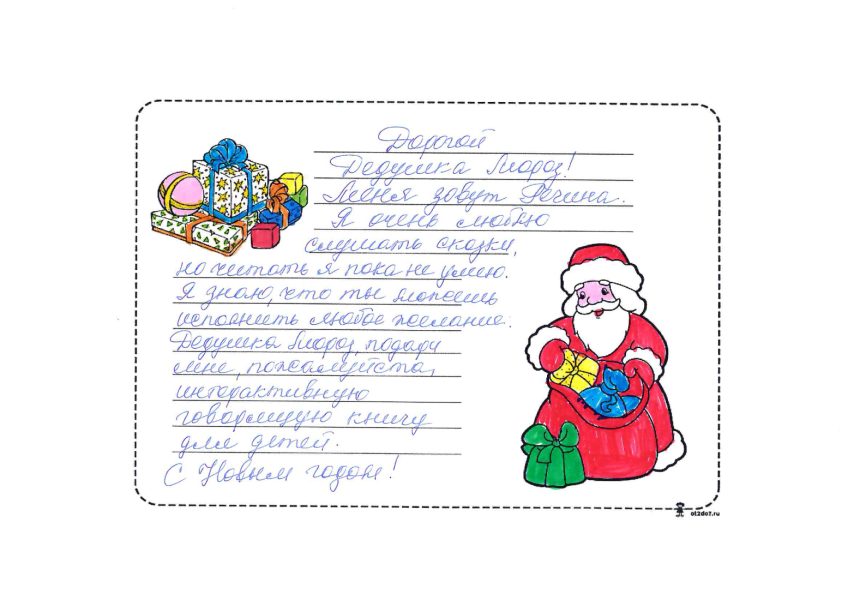 Дорогой
Дедушка Мороз!
Меня зовут Регина.
Я очень люблю
слушать сказки,
но читать я пока не умею.
Я знаю, что ты можешь
исполнить любое желание.
Дедушка Мороз, подари
мне, пожалуйста,
интерактивную
говорящую книгу
для детей.
С Новым годом!
ot2do7.ru